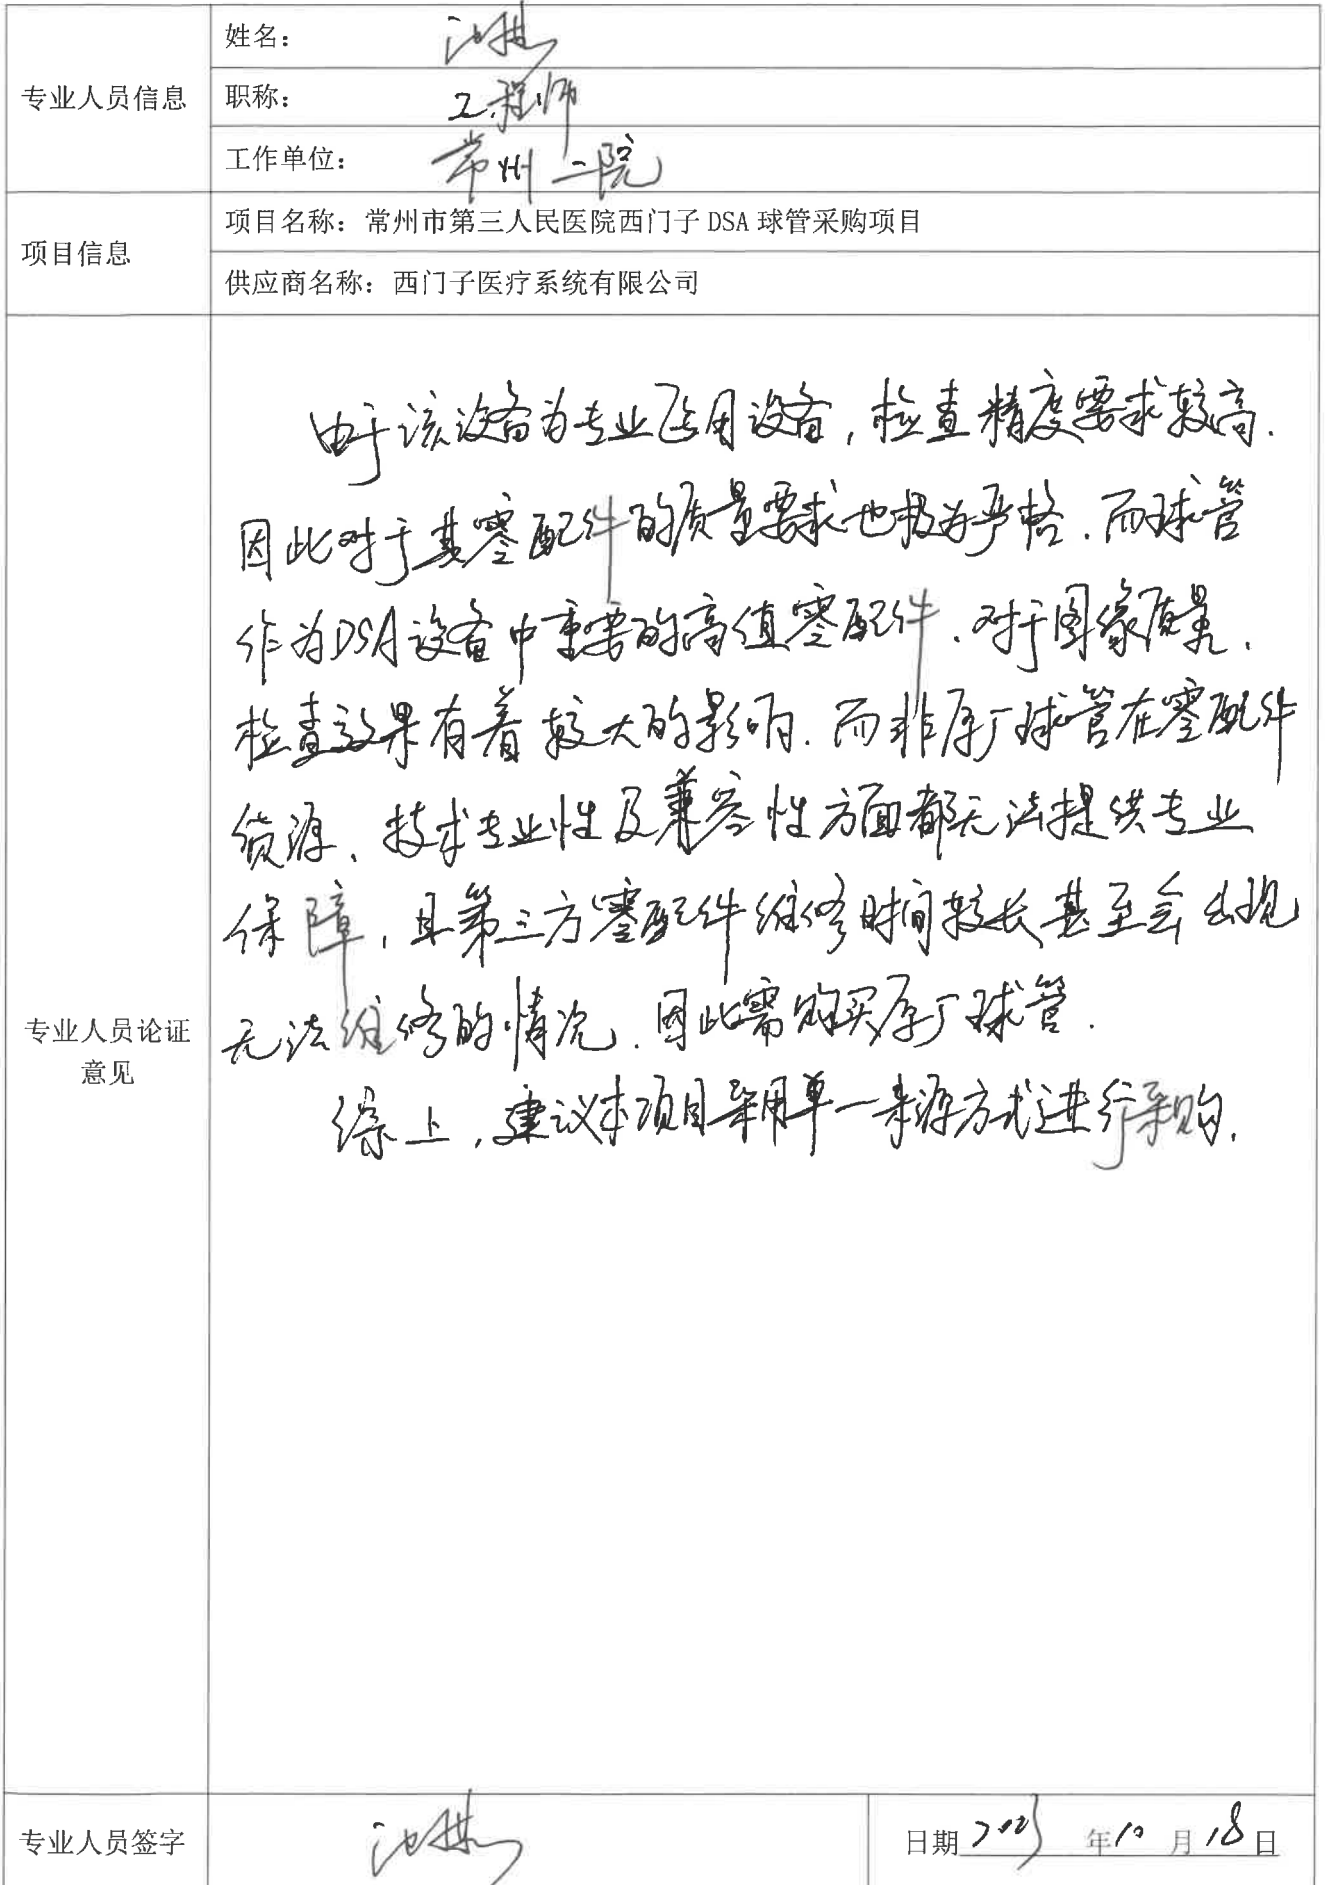 专业人员信息
姓名：
职称： 工程师
工作单位： 常州二院
项目信息
项目名称：常州市第三人民医院西门子 DSA 球管采购项目
供应商名称：西门子医疗系统有限公司
由于该设备为专业医用设备，检查精度要求较高.
因此对于其零配件的质量要求也极为严格.而球管
作为DSA设备中重要的高值零配件、对于图像质量、
检查效果有着较大的影响.而非原厂球管在零配件
货源、技术专业性及兼容性方面都无法提供专业
保障，且第三方零配件维修时间较长甚至会出现
无法维修的情况.因此需购买原厂球管.
综上，建议本项目采用单一来源方式进行采购.
专业人员论证
意见
专业人员签字
日期 2023 年 10 月 18 日